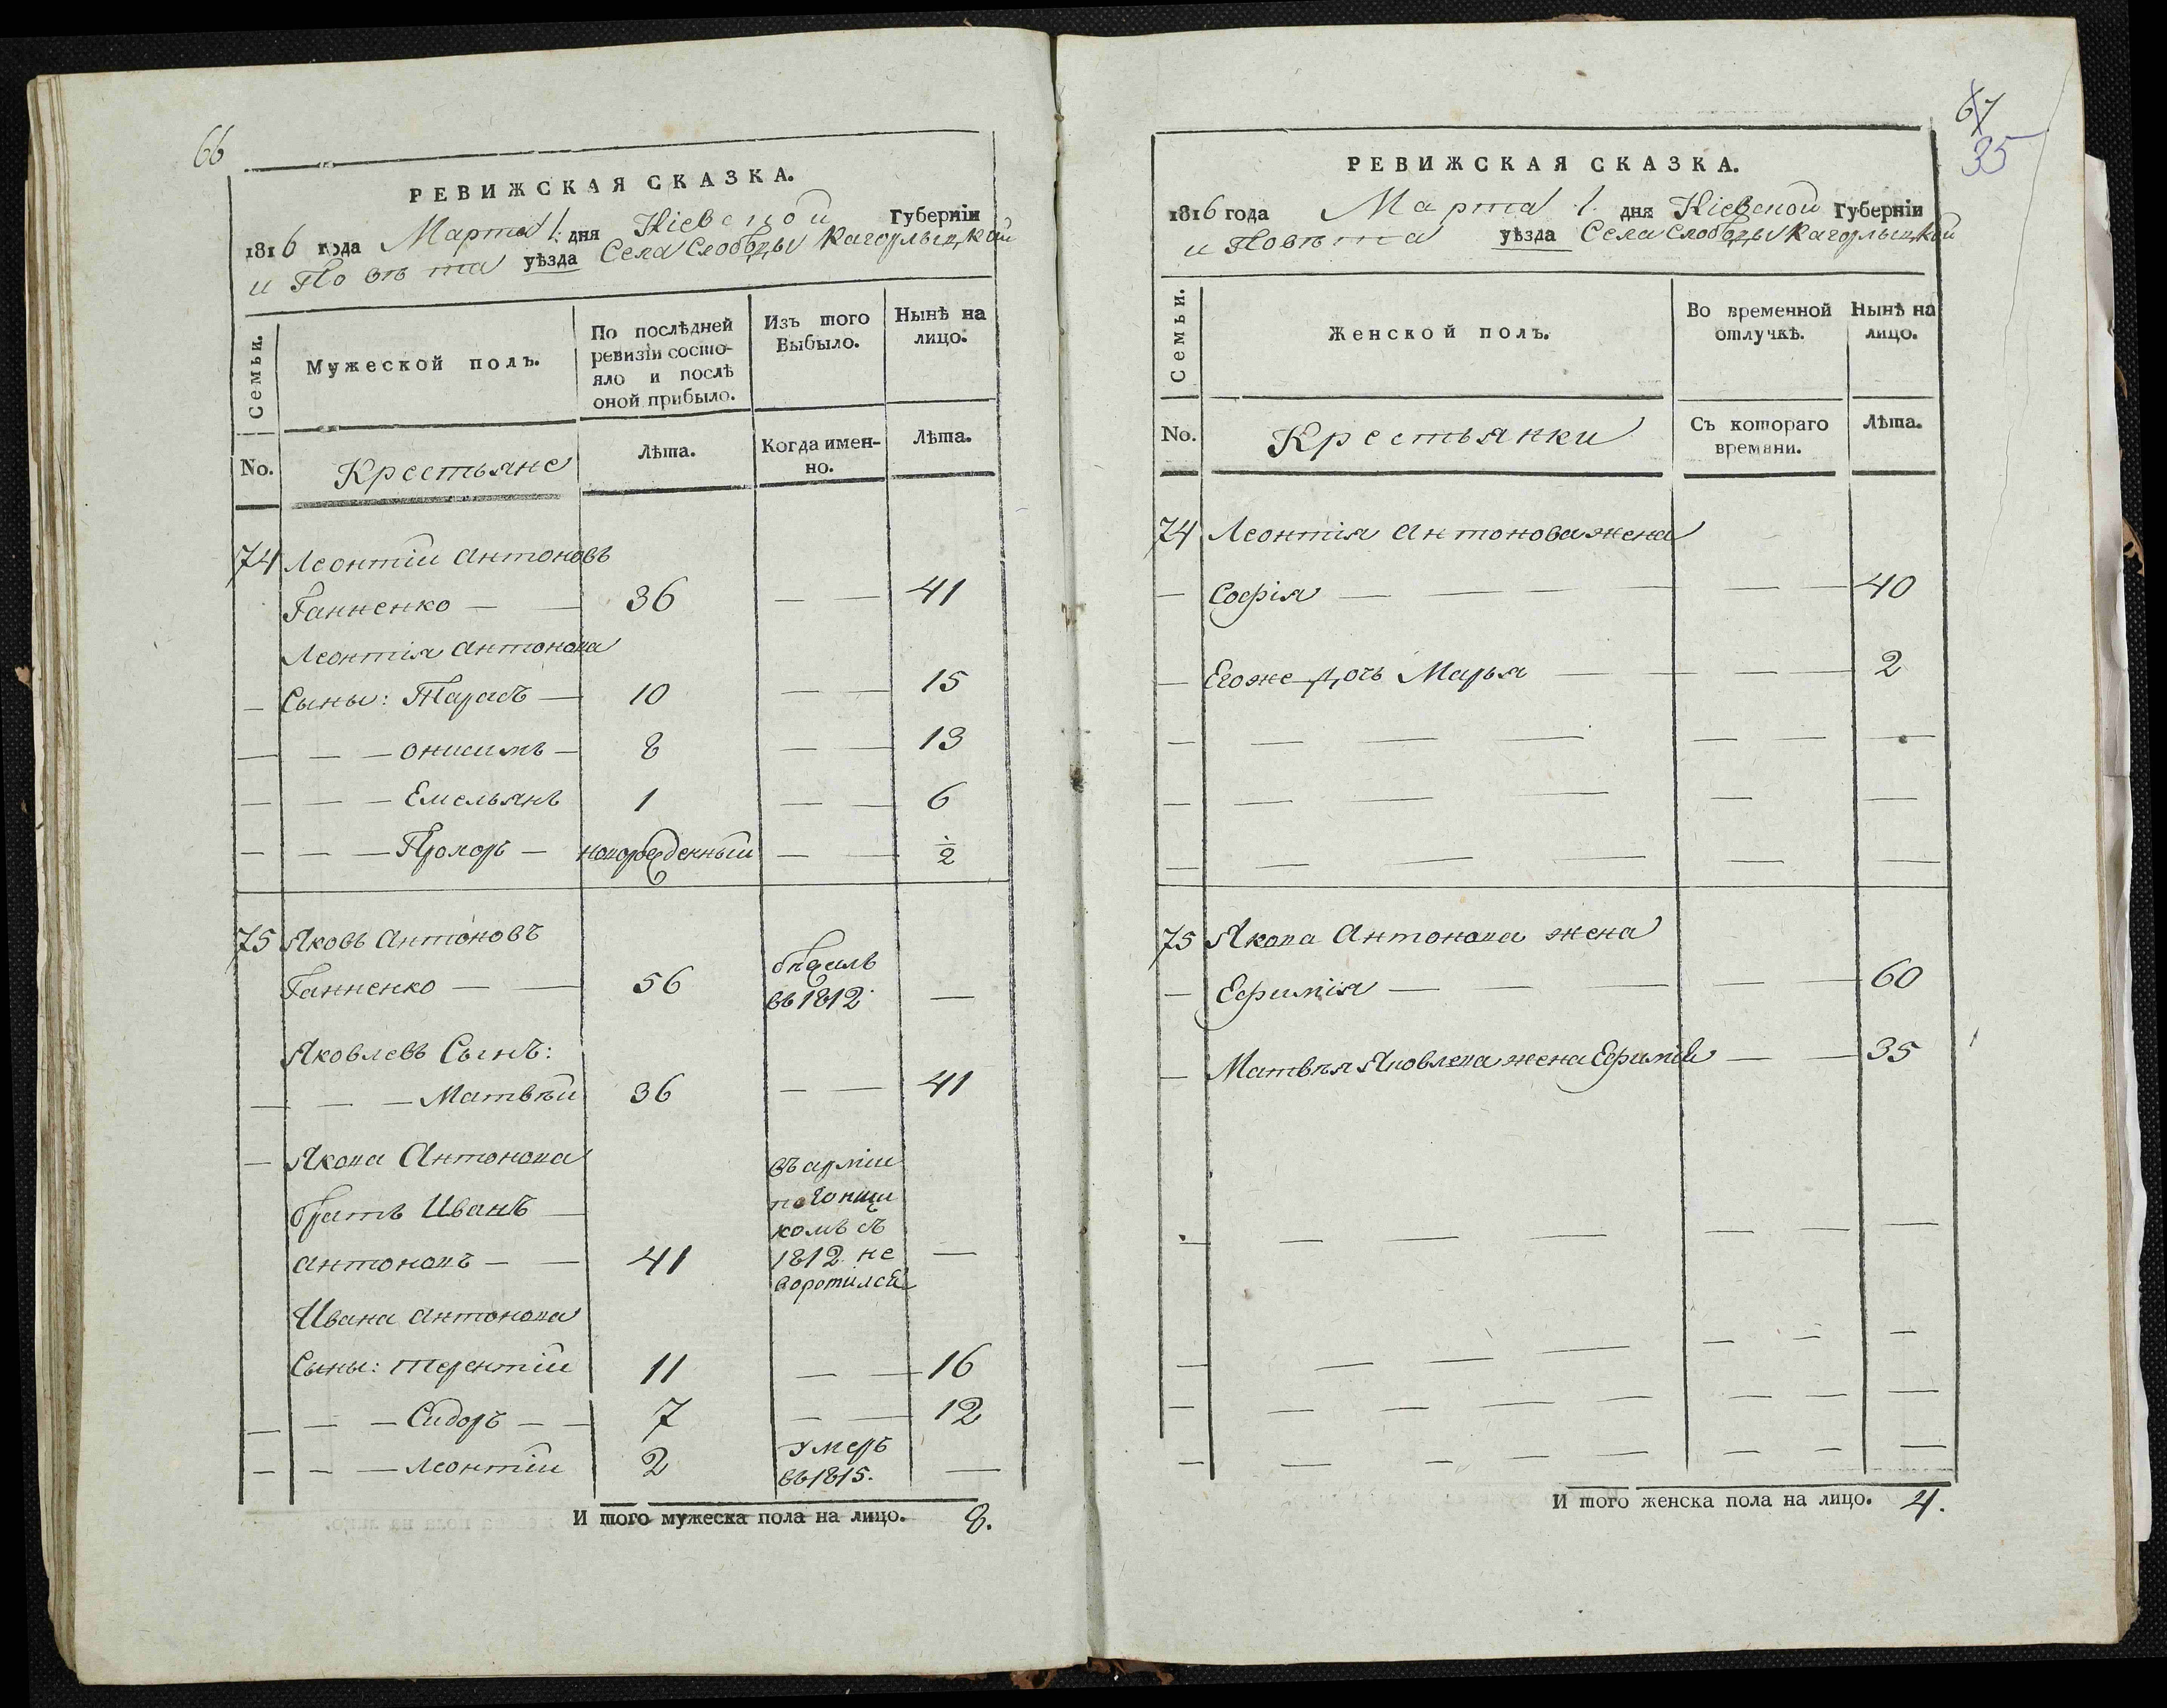 66
РЕВИЖСКАЯ СКАЗКА.
1816 года Марта 1. дня Кіевской Губерніи
и Повѣта уѣзда Села Слободы Кагорлыцкой
Семьи.
Мужеской полъ.
По послѣдней
ревизіи состо-
яло и послѣ
оной прибыло.
Изъ того
Выбыло.
Нынѣ на
лицо.
No.
Крестьяне
Лѣта.
Когда имен-
но.
Лѣта.
74 Леонтій Антоновъ
Ганненко — — 36 — — 41
Леонтія Антонова
— Сыны: Тарасъ — 10 — — 15
— — — Онисимъ — 8 — — 13
— — — Емельянъ 1 — — 6
— — — Прохоръ — новорожденный — — 1/2
75 Яковъ Антоновъ
Ганненко — — 56 бѣжалъ
въ 1812. —
Яковлевъ Сынъ:
— — — Матвѣй 36 — — 41
— Якова Антонова
братъ Иванъ —
Антоновъ — — 41
въ арміи
погонщи
комъ съ
1812 не
воротился —
Ивана Антонова
Сыны: Терентій 11 — — 16
— — — Сидоръ — — 7 — — 12
— — — Леонтій 2 умеръ
въ 1815. —
И того мужеска пола на лицо. 8.
67
35
РЕВИЖСКАЯ СКАЗКА.
1816 года Марта 1. дня Кіевской Губерніи
и Повѣта уѣзда Села Слободы Кагорлыцкой
Семьи.
Женской полъ.
Во временной
отлучкѣ.
Нынѣ на
лицо.
No.
Крестьянки
Съ котораго
времяни.
Лѣта.
74 Леонтія Антонова жена
— Софія — — — — — — 40
— Егоже дочь Марья — — — — 2
75 Якова Антонова жена
— Ефимія — — — — — 60
— Матвѣя Яковлева жена Ефимія — — 35
И того женска пола на лицо. 4.